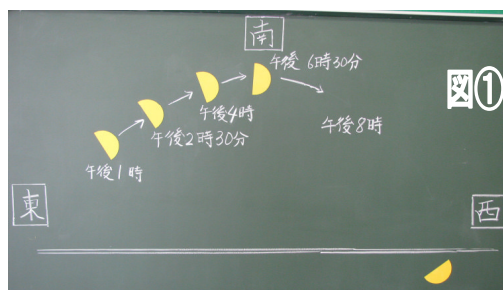 南
午後6時30分
図①
午後4時
午後8時
午後2時30分
午後1時
東
西